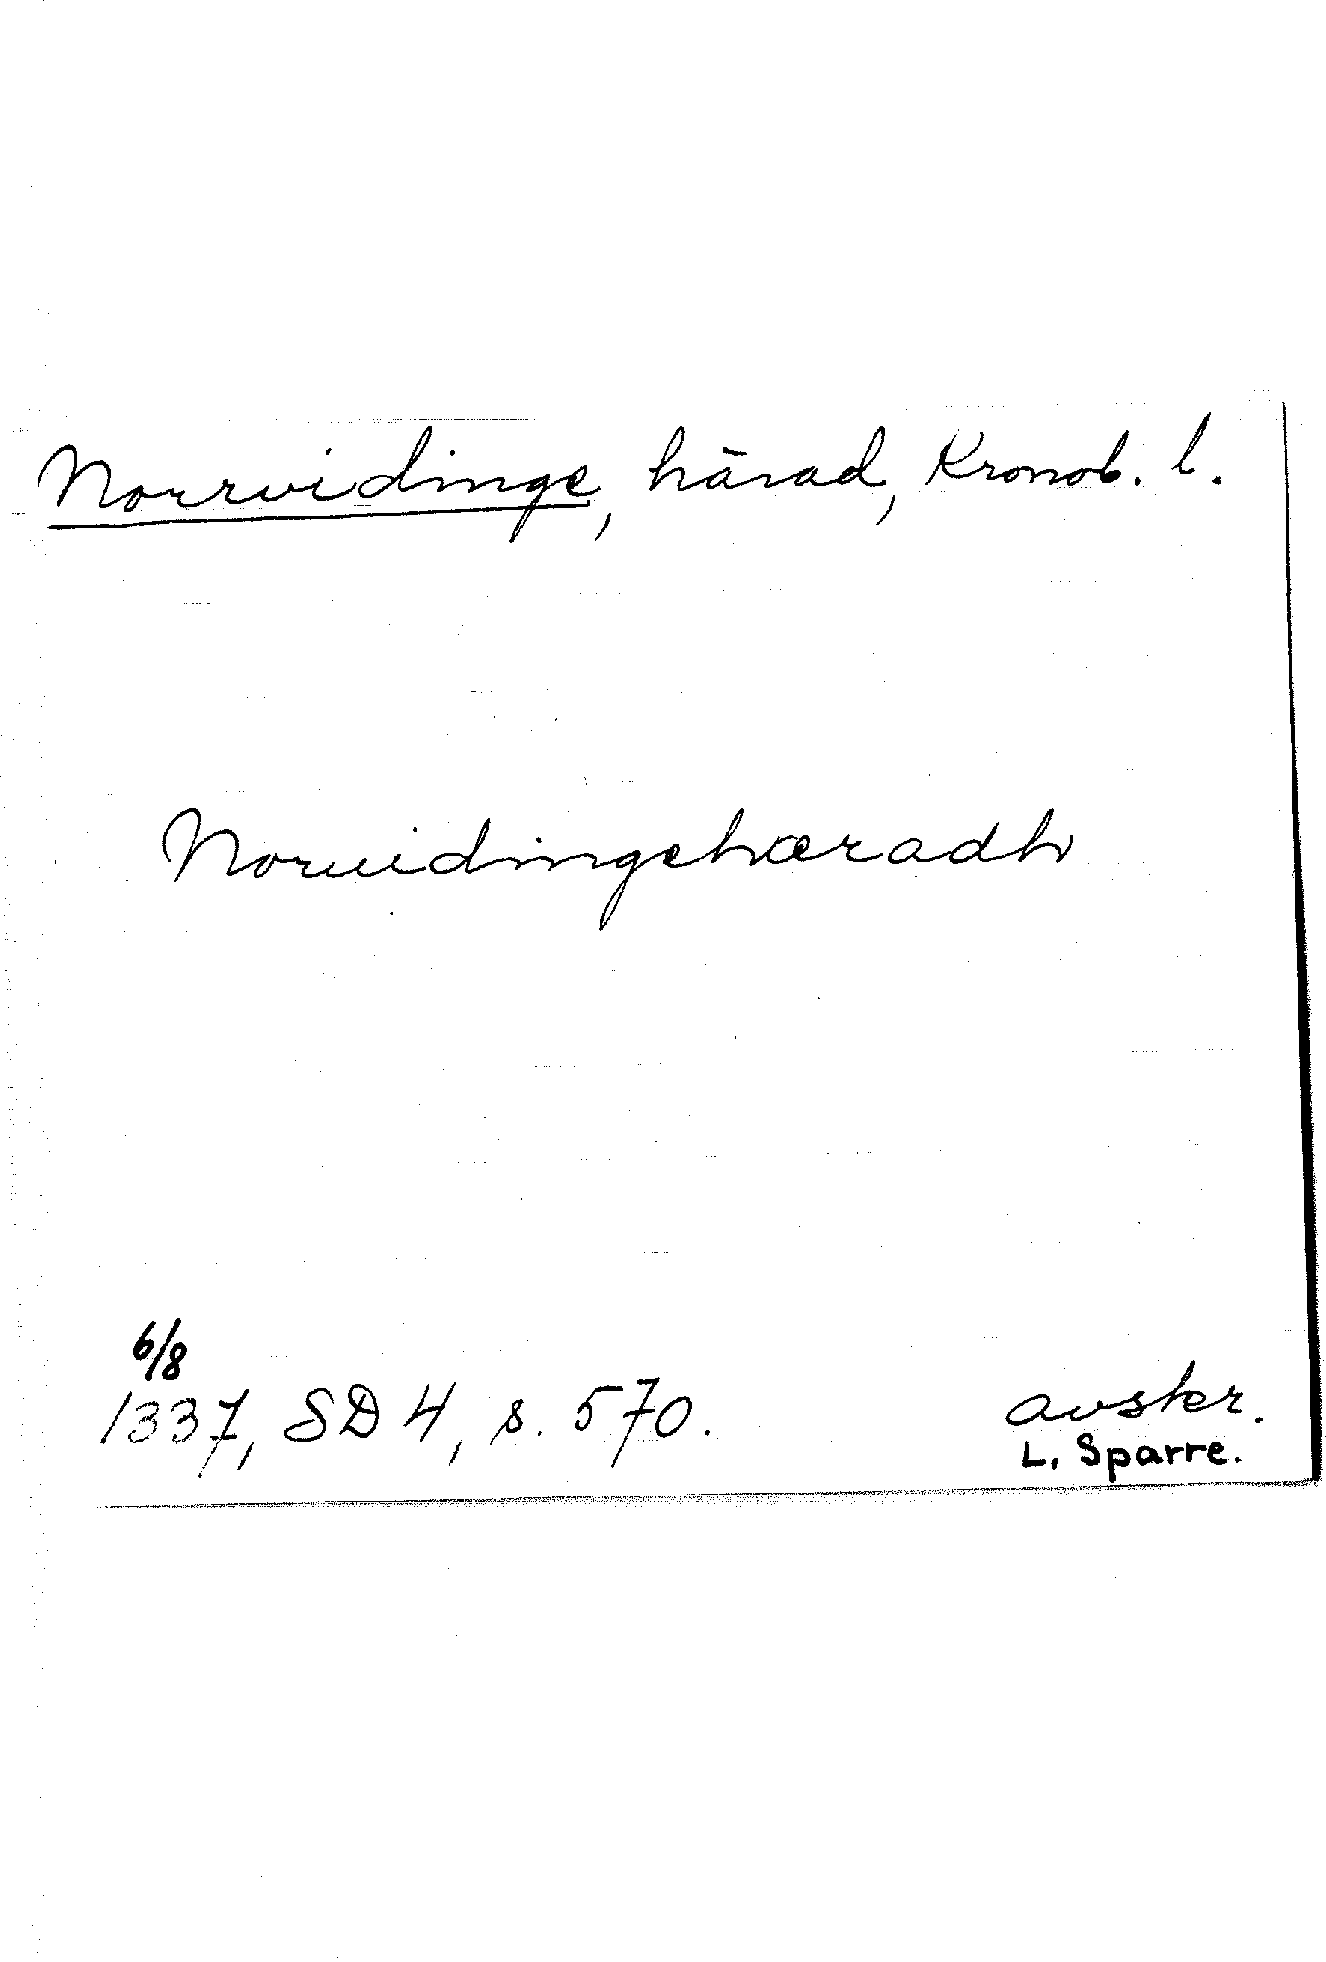 Norrvidinge, härad, Kronob. l.
Noruidingehæradh
6/8
1337, SD 4, s. 570.
avskr.
L. Sparre.